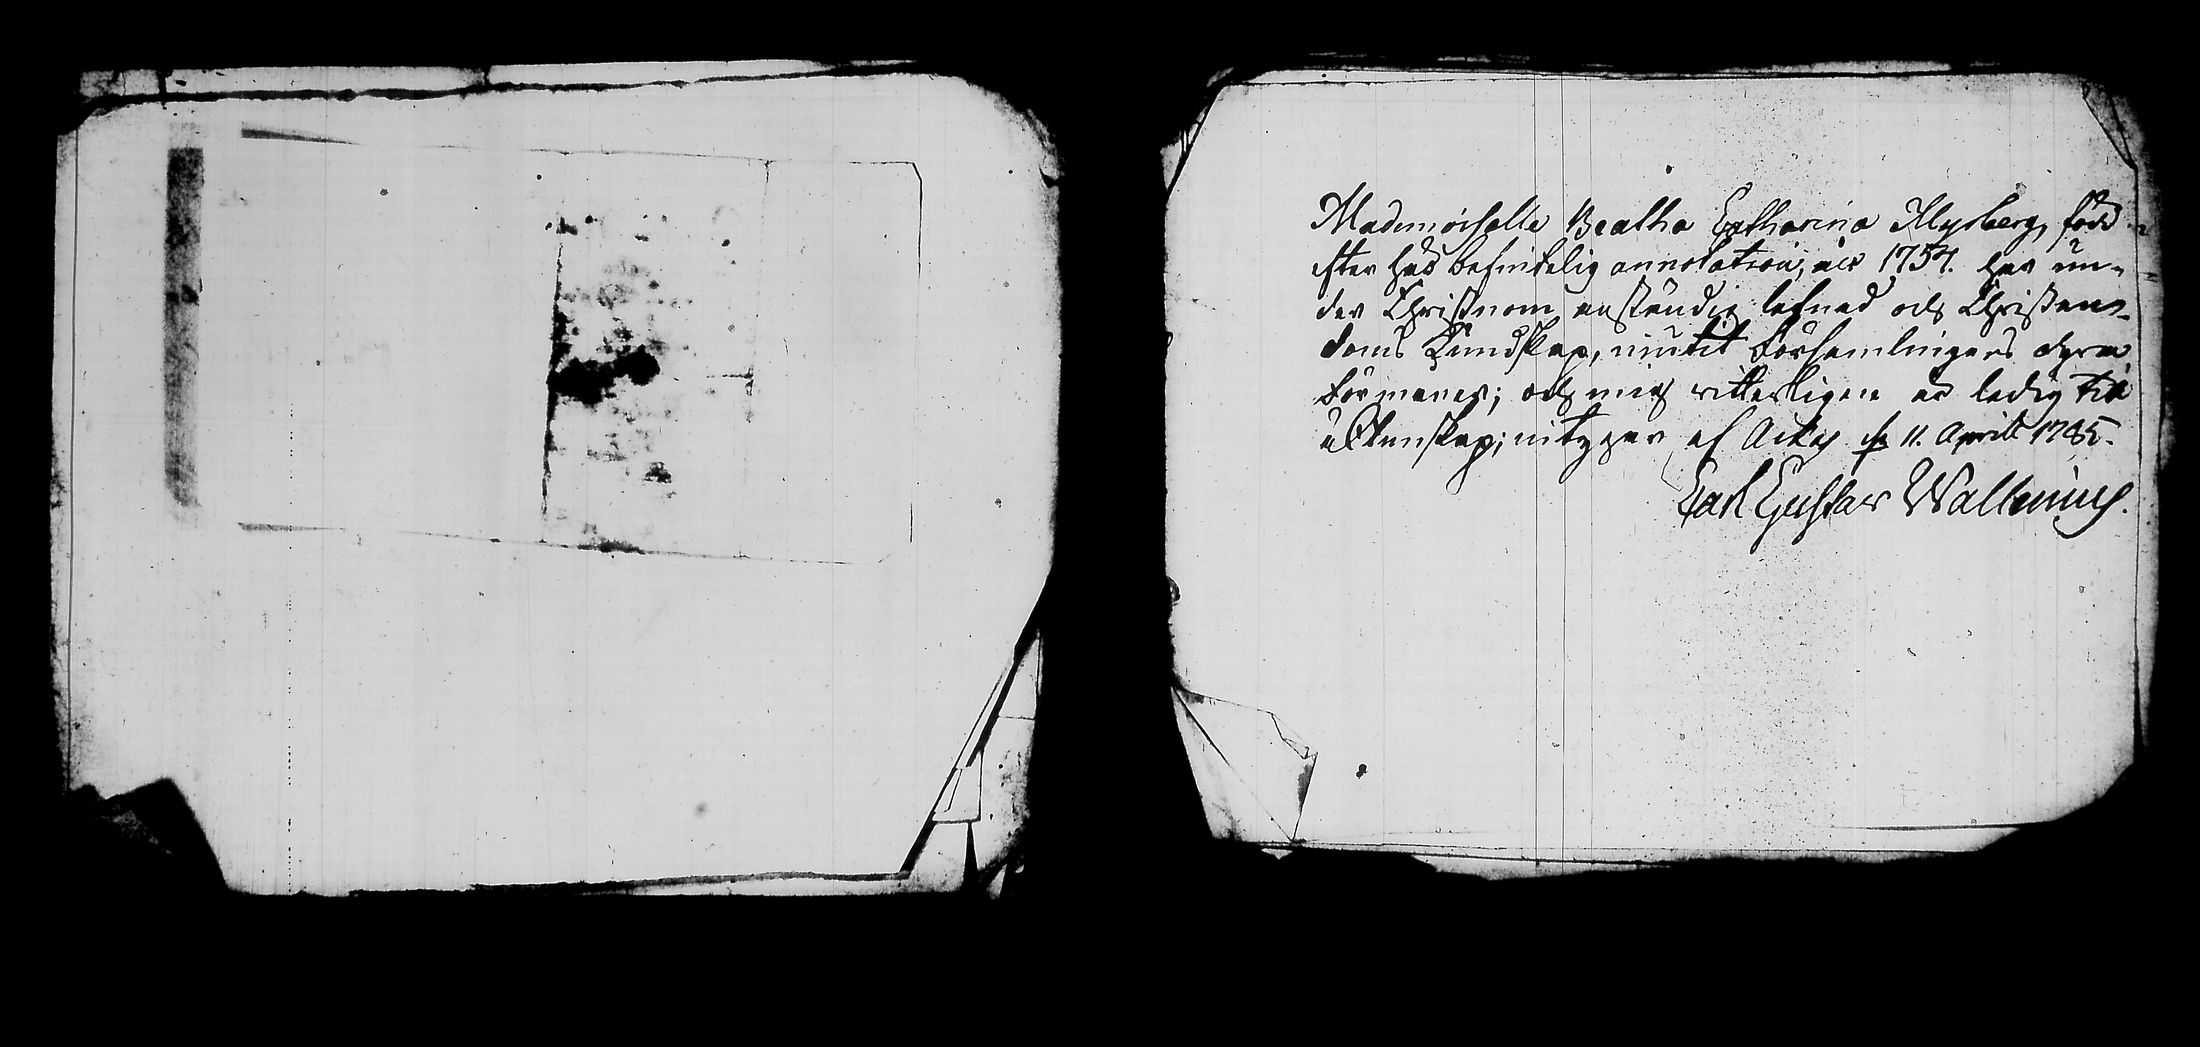 Mademoiselle Beatha Catharina Flygberg, född
efter här befintelig annotation, år 1754. har un-
der Christnom anständig lefnad och Christen-
doms Kundskap, njutit Församlingens dyra
förmoner; och mig vitterligen är ledig til
äktenskap; intygar af Acka d. 11. April 1785.
Carl Gustav Wallenius.